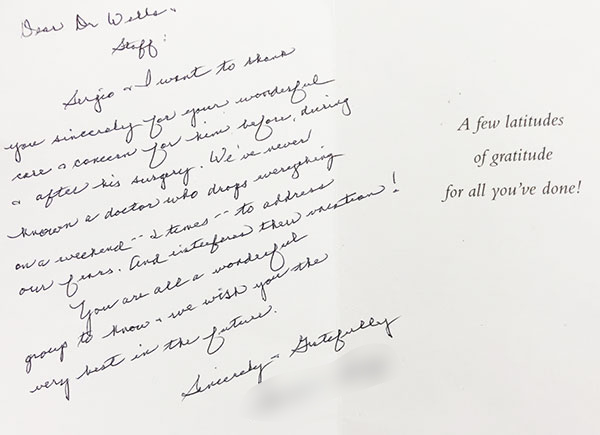 Dear Dr Wells &
Staff:
Sergio & I want to thank
you sincerely for your wonderful
care & concern for him before, during
& after his surgery. We've never
known a doctor who drops everything
on a weekend -- 2 times -- to address
our fears. And interferes their vacation!
You are all a wonderful
group to know & we wish you the
very best in the future.
Sincerely & Gratefully
A few latitudes
of gratitude
for all you've done!